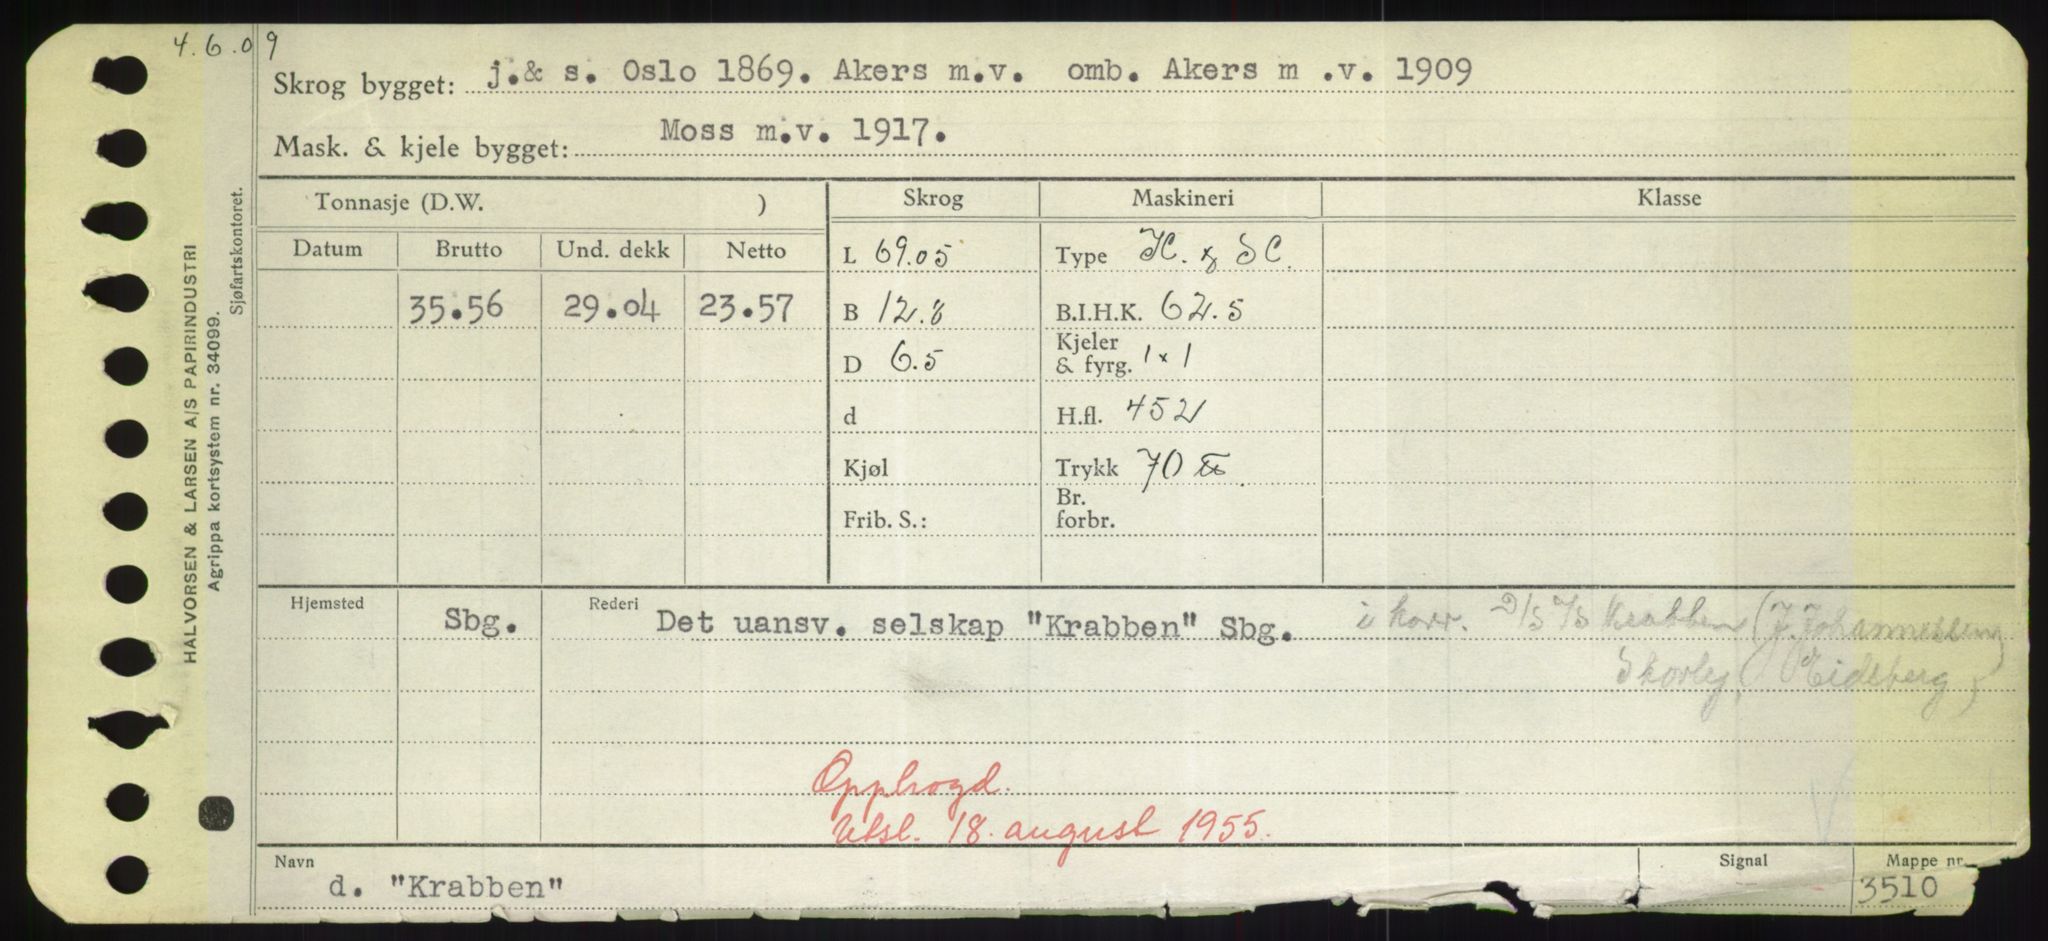 4.6.09
Skrog bygget: j.& s. Oslo 1869. Akers m.v. omb. Akers m .v. 1909
Mask. & kjele bygget: Moss m.v. 1917.
HALVORSEN & LARSEN A/S PAPIRINDUSTRI
Agrippa kortsystem nr. 34099.
Sjøfartskontoret.
Tonnasje (D.W. ) Skrog Maskineri Klasse
Datum Brutto Und. dekk Netto
35.56 29.04 23.57
L 69.05
B 12.8
D 6.5
d
Kjøl
Frib. S.:
Type
B.I.H.K. 62.5
Kjeler
& fyrg. 1 x 1
H.fl. 452
Trykk 70
Br.
forbr.
Hjemsted Sbg. Rederi Det uansv. selskap "Krabben" Sbg. i korr. D/S A/S Krabben (J. Johannessen)
Eidsberg
Opphogd.
Utsl. 18. august 1955.
Navn d. "Krabben" Signal Mappe nr. 3510